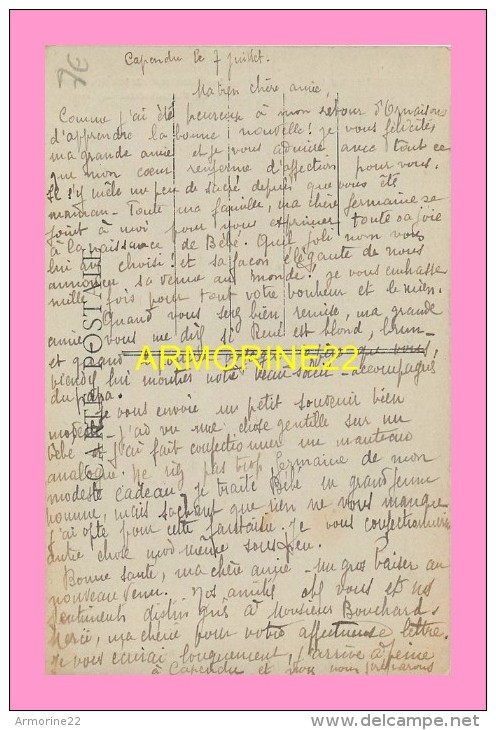 7€
Capendu le 7 juillet.
Ma bien chère amie,
Comme j'ai été heureux à mon retour d'Ornaisons
d'apprendre la bonne nouvelle! je vous félicite,
ma grande amie et je vous admire avec tout ce
que mon coeur renferme d'affection pour vous.
Il s'y mêle un peu de sacré depuis que vous êtes
maman. Toute ma famille, ma chère Germaine se
joint à moi pour vous exprimer toute sa joie
à la naissance de Bébé. Quel joli nom vous
lui avez choisi! et sa façon élégante de nous
annoncer sa venue au monde! je vous embrasse
mille fois pour tout votre bonheur et le mien.
Quand vous serez bien remise, ma grande
amie, vous me direz si René est blond, brun
et quand vous
viendrez lui montrer notre accompagnés
du papa.
je vous envoie un petit souvenir bien
modeste. j'ai vu une chose gentille sur un
Bébé et j'ai fait confectionner un manteau
analogue. ne riez pas trop Germaine de mon
modeste cadeau je traite Bébé en grand jeune
homme, mais sachant que rien ne vous manque
j'ai opté pour cette fantaisie. je vous confectionnerai
autre chose moi-même sous peu.
Bonne santé, ma chère amie un gros baiser au
nouveau venu. Nos amitiés vous et nos
sentiments distingués à Monsieur Bouchard.
Merci, ma chérie pour votre affectueuse lettre.
je vous écrirai longuement, j'arrive à peine
à Capendu et nous nous préparons
CARTE POSTALE
ARMORINE22
Armorine22
http://www.delcampe.net